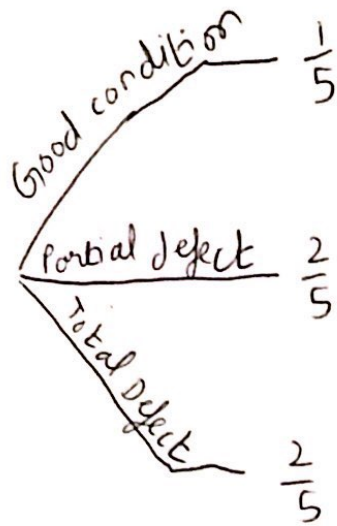 Good condition
1/5
Partial defect
2/5
Total Defect
2/5